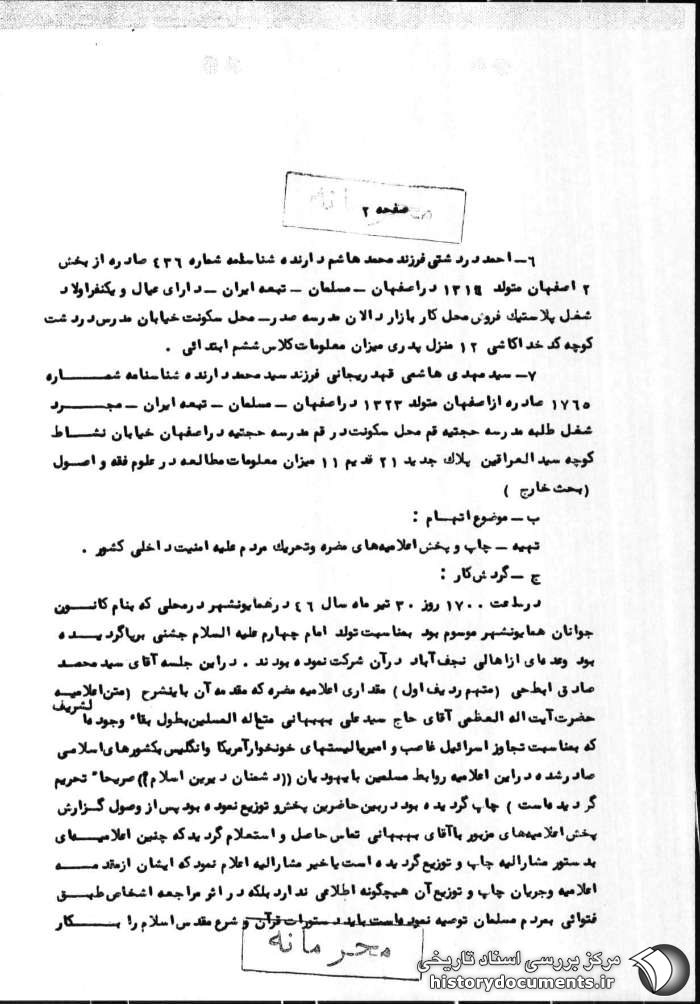 صفحه ۲
۶- احمد دردشتی فرزند محمد هاشم دارنده شناسنامه شماره ۴۳۶ صادره از بخش
۲ اصفهان متولد ۱۳۱۴ در اصفهان - مسلمان - تبعه ایران - دارای عیال و یکنفر اولاد
شغل پلاستیک فروش محل کار بازار دالان مدرسه صدر - محل سکونت خیابان مدرس دردشت
کوچه کد خدا کاشی ۱۲ منزل پدری میزان معلومات کلاس ششم ابتدائی .
۷- سید مهدی هاشمی قهدریجانی فرزند سید محمد دارنده شناسنامه شمـــاره
۱۷۶۵ صادره از اصفهان متولد ۱۳۲۳ در اصفهان - مسلمان - تبعه ایران - مجـــرد
شغل طلبه مدرسه حجتیه قم محل سکونت در قم مدرسه حجتیه در اصفهان خیابان نشـــاط
کوچه سید العراقین پلاک جدید ۲۱ قدیم ۱۱ میزان معلومات مطالعه در علوم فقه و اصـول
(بحث خارج )
ب - موضوع اتهـــام :
تهیه - چاپ و پخش اعلامیه‌های مضره وتحریک مردم علیه امنیت داخلی کشور .
ج - گردش کار :
در ساعت ۱۷۰۰ روز ۳۰ تیر ماه سال ۴۶ در همایونشهر در محلی که بنام کانـــون
جوانان همایونشهر موسوم بود بمناسبت تولد امام چهارم علیه السلام جشنی برپا گردیـــده
بود وعده‌ای از اهالی نجف‌آباد در آن شرکت نموده بودند . در این جلسه آقای سید محمـد
صادق ابطحی (متهم ردیف اول ) مقداری اعلامیه مضره که مقدمه آن باینشرح (متن اعلامیـه
حضرت آیت اله العظمی آقای حاج سید علی بهبهانی متع‌اله المسلمین بطول بقاء وجوده الشریف
که بمناسبت تجاوز اسرائیل غاصب و امپریالیستهای خونخوار آمریکا وانگلیس بکشورهای اسلامی
صادر شده در این اعلامیه روابط مسلمین با یهودیان ((دشمنان دیرین اسلام)) صریحاً تحریم
گردیده‌است ) چاپ گردیده بود در بین حاضرین پخش و توزیع نموده بود پس از وصول گـزارش
پخش اعلامیه‌های مزبور با آقای بهبهانی تماس حاصل و استعلام گردید که چنین اعلامیـــه‌ای
بدستور مشارالیه چاپ و توزیع گردیده است یا خیر مشارالیه اعلام نمود که ایشان از مقدمـــه
اعلامیه وجریان چاپ و توزیع آن هیچگونه اطلاعی ندارد بلکه در اثر مراجعه اشخاص طبـــق
فتوائی بمردم مسلمان توصیه نموده‌است باید دستورات قرآن و شرع مقدس اسلام را بـــکار
محرمانه
مرکز بررسی اسناد تاریخی
historydocuments.ir